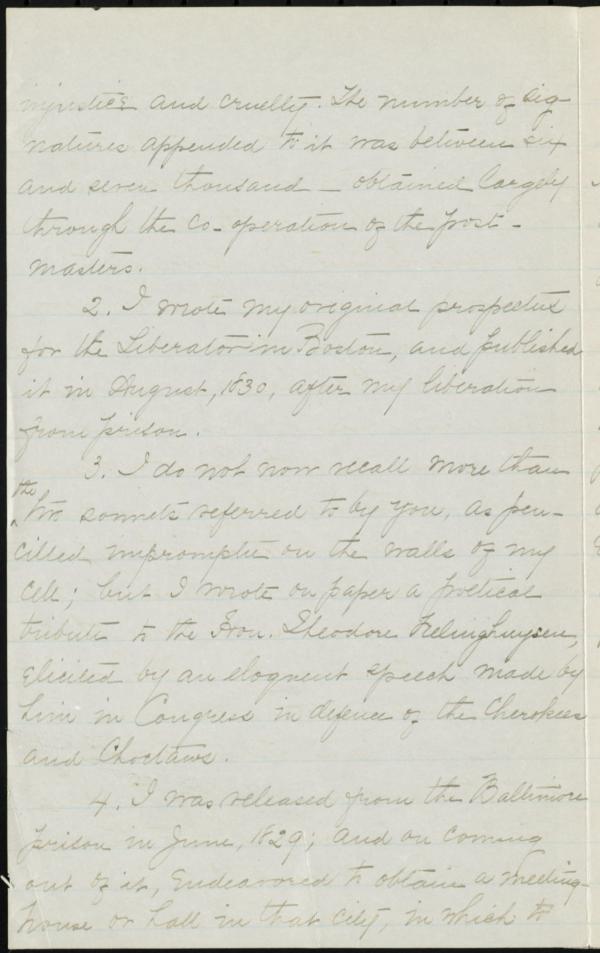 injustice and cruelty. The number of sig-
natures appended to it was between six
and seven thousand — obtained largely
through the co-operation of the post-
masters.
2. I wrote my original prospectus
for the Liberator in Boston, and published
it in August, 1830, after my liberation
from prison.
3. I do not now recall more than
the
two sonnets referred to by you, as pen-
cilled impromptu on the walls of my
cell; but I wrote on paper a poetical
tribute to the Hon. Theodore Frelinghuysen,
elicited by an eloquent speech made by
him in Congress in defence of the Cherokees
and Choctaws.
4. I was released from the Baltimore
prison in June, 1829; and on coming
out of it, endeavored to obtain a meeting-
house or hall in that city, in which to